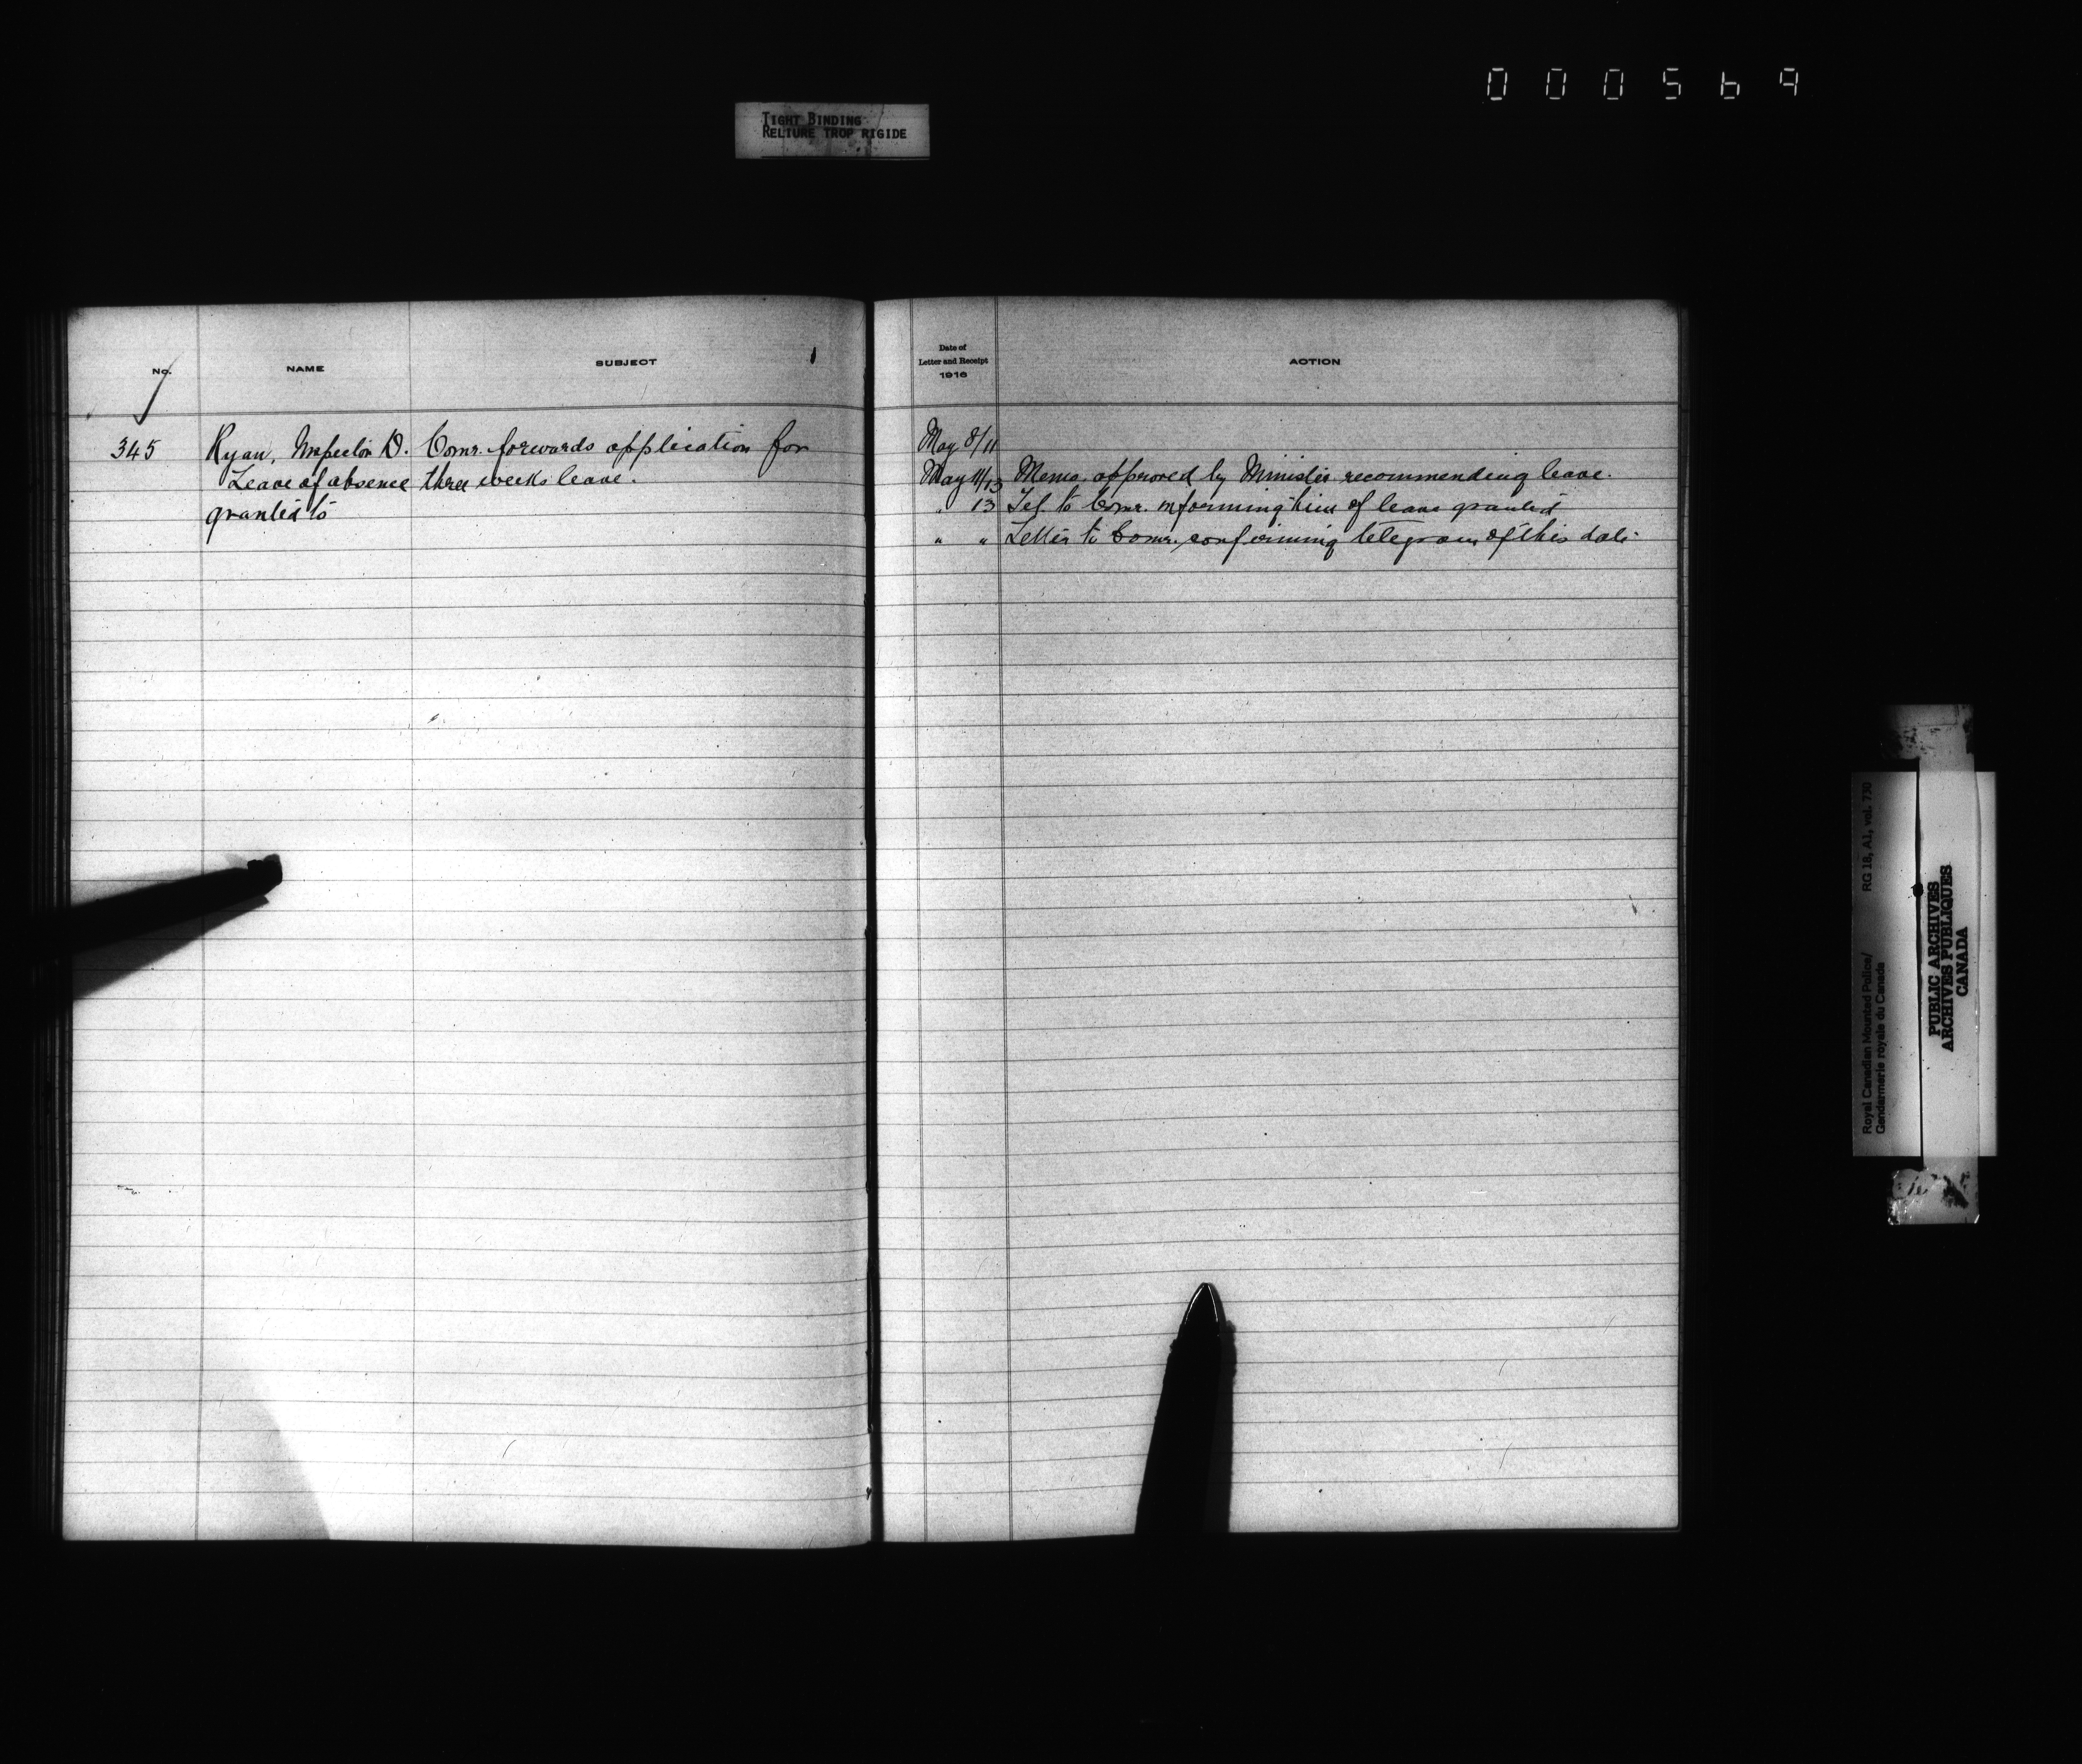 000569
TIGHT BINDING
RELIURE TROP RIGIDE
No.
NAME
SUBJECT
Date of
Letter and Receipt
1916
ACTION
345
Ryan, Inspector D.
Leave of absence
granted to
Comr. forwards application for
three weeks leave.
May 8/11
May 11/13 Memo. approved by Minister recommending leave.
" 13 Tel. to Comr. informing him of leave granted
" " Letter to Comr. confirming telegram of this date
Royal Canadian Mounted Police/ RG 18, A1, vol. 730
Gendarmerie royale du Canada
PUBLIC ARCHIVES
ARCHIVES PUBLIQUES
CANADA